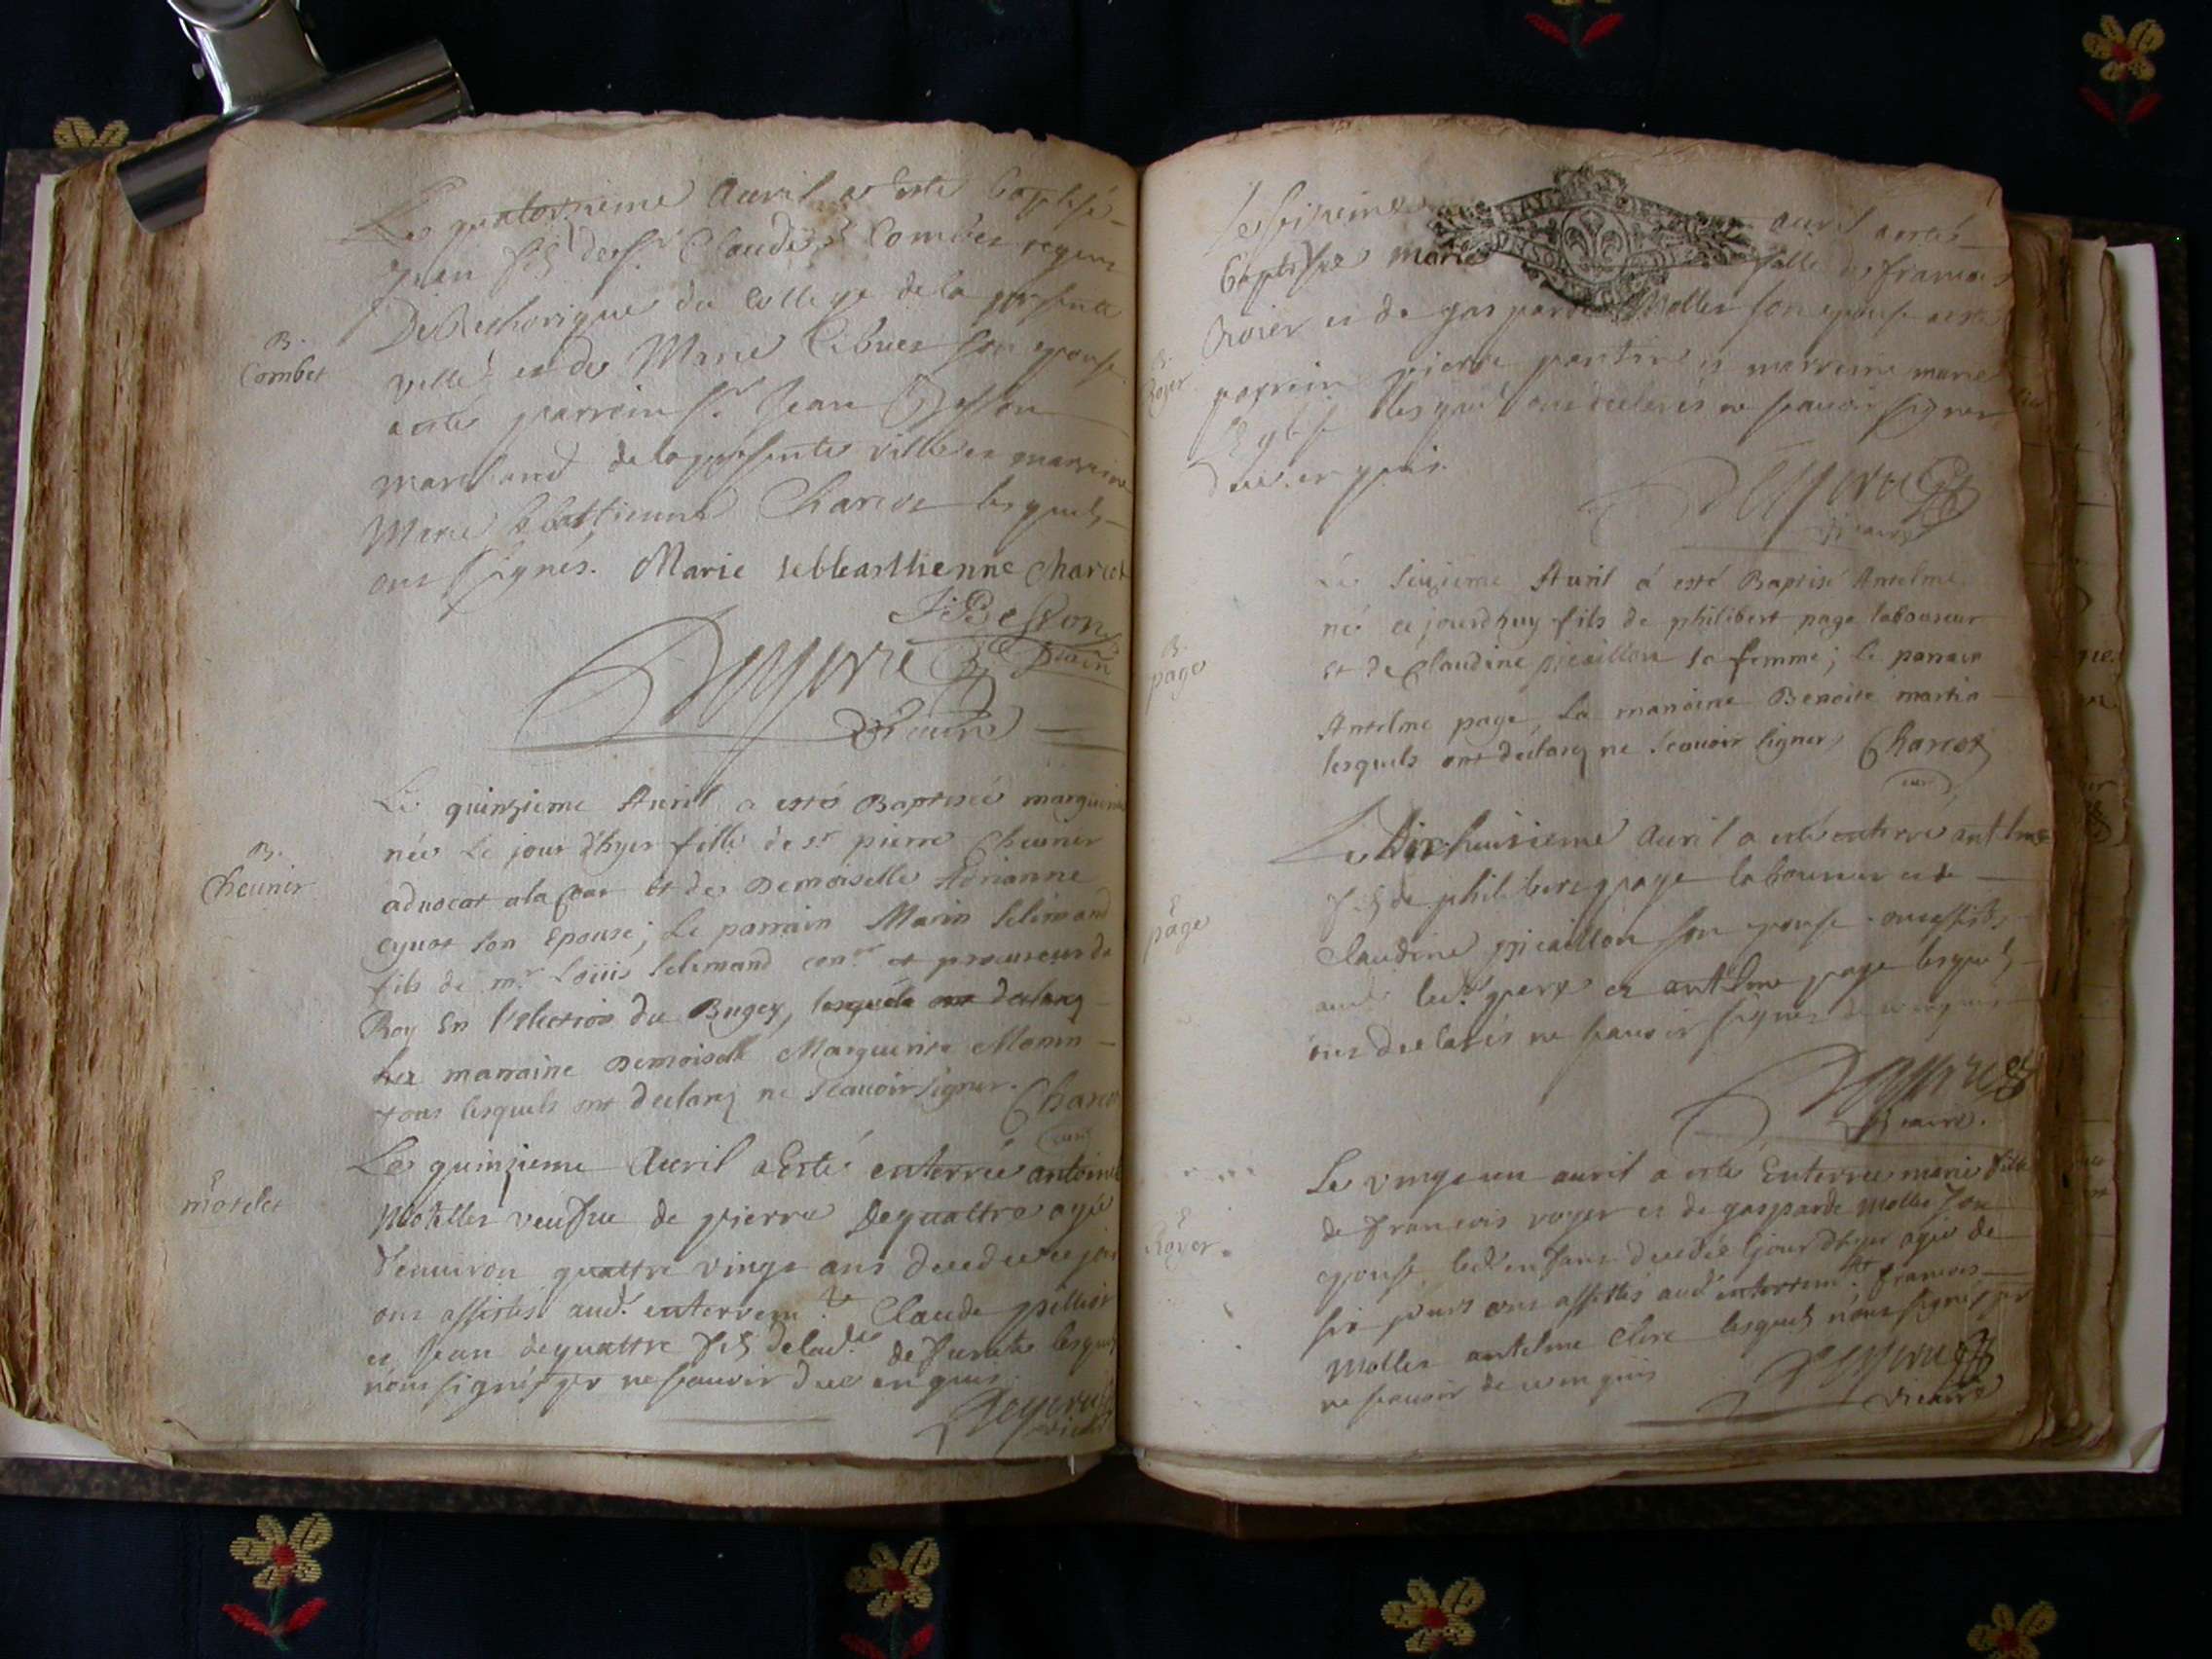 B.
Combet
Le quatorzieme Auril a esté baptisé
jean fils de sr. Claude Combet regent
De Rethorique du College de la presente
ville et de Marie son epouse
a esté parrein sr. Jean Besson
marchand de la presente ville et marreine
Marie Sebastienne Charcot lesquels
ont signés. Marie sebbeasthienne charcot
J. Besson
Deyerve
Vicaire
B.
Cheunier
Le quinzieme Auril a esté Baptisée marguerite
née Le jour d'hyer fille de sr. pierre Cheunier
aduocat a la Cour et de Demoiselle Adrianne
cynot son Epouse; Le parrain Marin
fils de mr. Loüis conr. et procureur du
Roy En l'election du Bugey, lesquels ont declaré
La marraine Demoiselle Marguerite Monin
tous lesquels ont declaré ne scauoir signer. Charcot
curé
E
motelet
Le quinzieme Auril a Esté enterrée antoinette
veufue de pierre Dequattre agée
d'enuiron quattre vingt ans
ont assistés aud. enterrem.t Claude
et Jean dequattre fils de lad.e defunte lesquels
n'ont signés per ne scauoir de ce enquis.
Deyerve
vicaire
B.
Royer
Le seizieme auril a esté
baptisée marie fille de francois
Roier et de gasparde Mollet son epouse a esté
parrein pierre et marreine marie
lesquels ont declarés ne scauoir signer
de ce enquis.
Deyerve
Vicaire
B.
page
Le Seizieme Auril á esté Baptisé Antelme
né ce jourdhuy fils de philibert page laboureur
et de Claudine picaillon sa femme; le parrain
Antelme page, La marraine Benoite martin
lesquels ont déclaré ne scauoir signer, Charcot
curé
E
page
Le Dixhuitieme auril a esté enterré antelme
fils de philibert page laboureur et de
claudine picaillon son epouse ont assistés
aud. led. pere et antelme page lesquels
ont declarés ne scauoir signer de ce enquis
Deyerve
Vicaire.
E
Royer.
Le vingt un auril a esté Enterrée marie fille
de francois royer et de gasparde mollet son
epouse led. enfant decedée le jour d'hyer agée de
six jours ont assistés aud. enterrem.t francois
Mollet antelme Clerc lesquels n'ont signés per
ne scauoir de ce enquis
Deyerve
vicaire